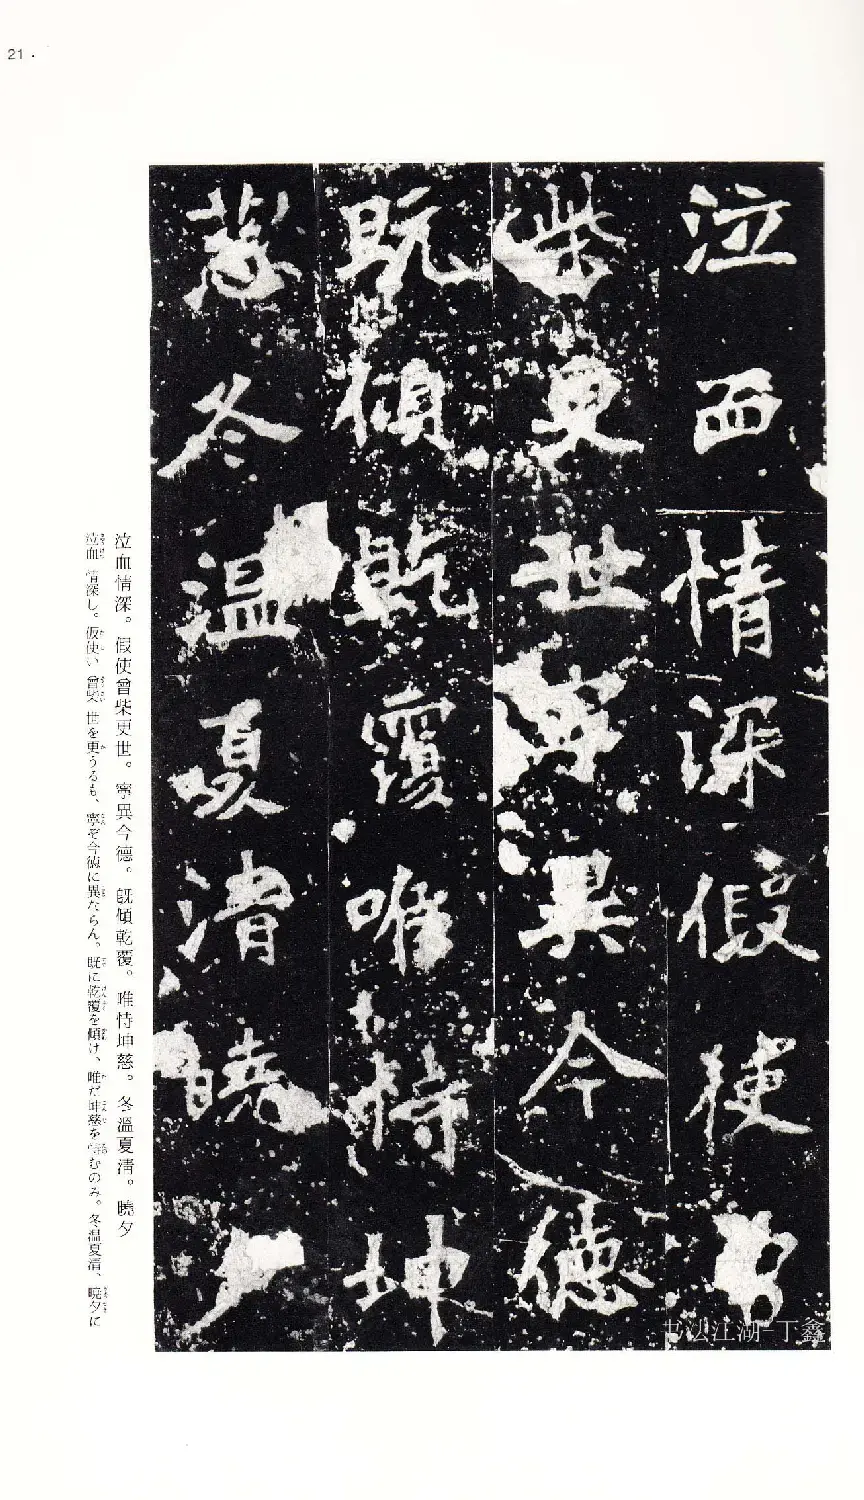 21
泣血情深假使曾
柴更世寧異今德
既傾乾覆唯恃坤
慈冬温夏清曉夕
泣血情深。假使曾柴更世。寧異今德。既傾乾覆。唯恃坤慈。冬溫夏清。曉夕
泣血 情深し。仮使い 曾柴 世を更うるも、寧ぞ今徳に異ならん。既に乾覆を傾け、唯だ坤慈を恃むのみ。冬温夏清、曉夕に
书法江湖-丁鑫